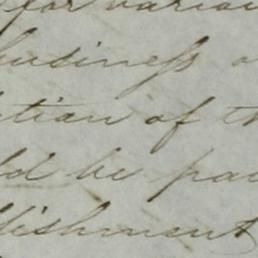 for variou
business o
tion of th
ld be pai
lishment